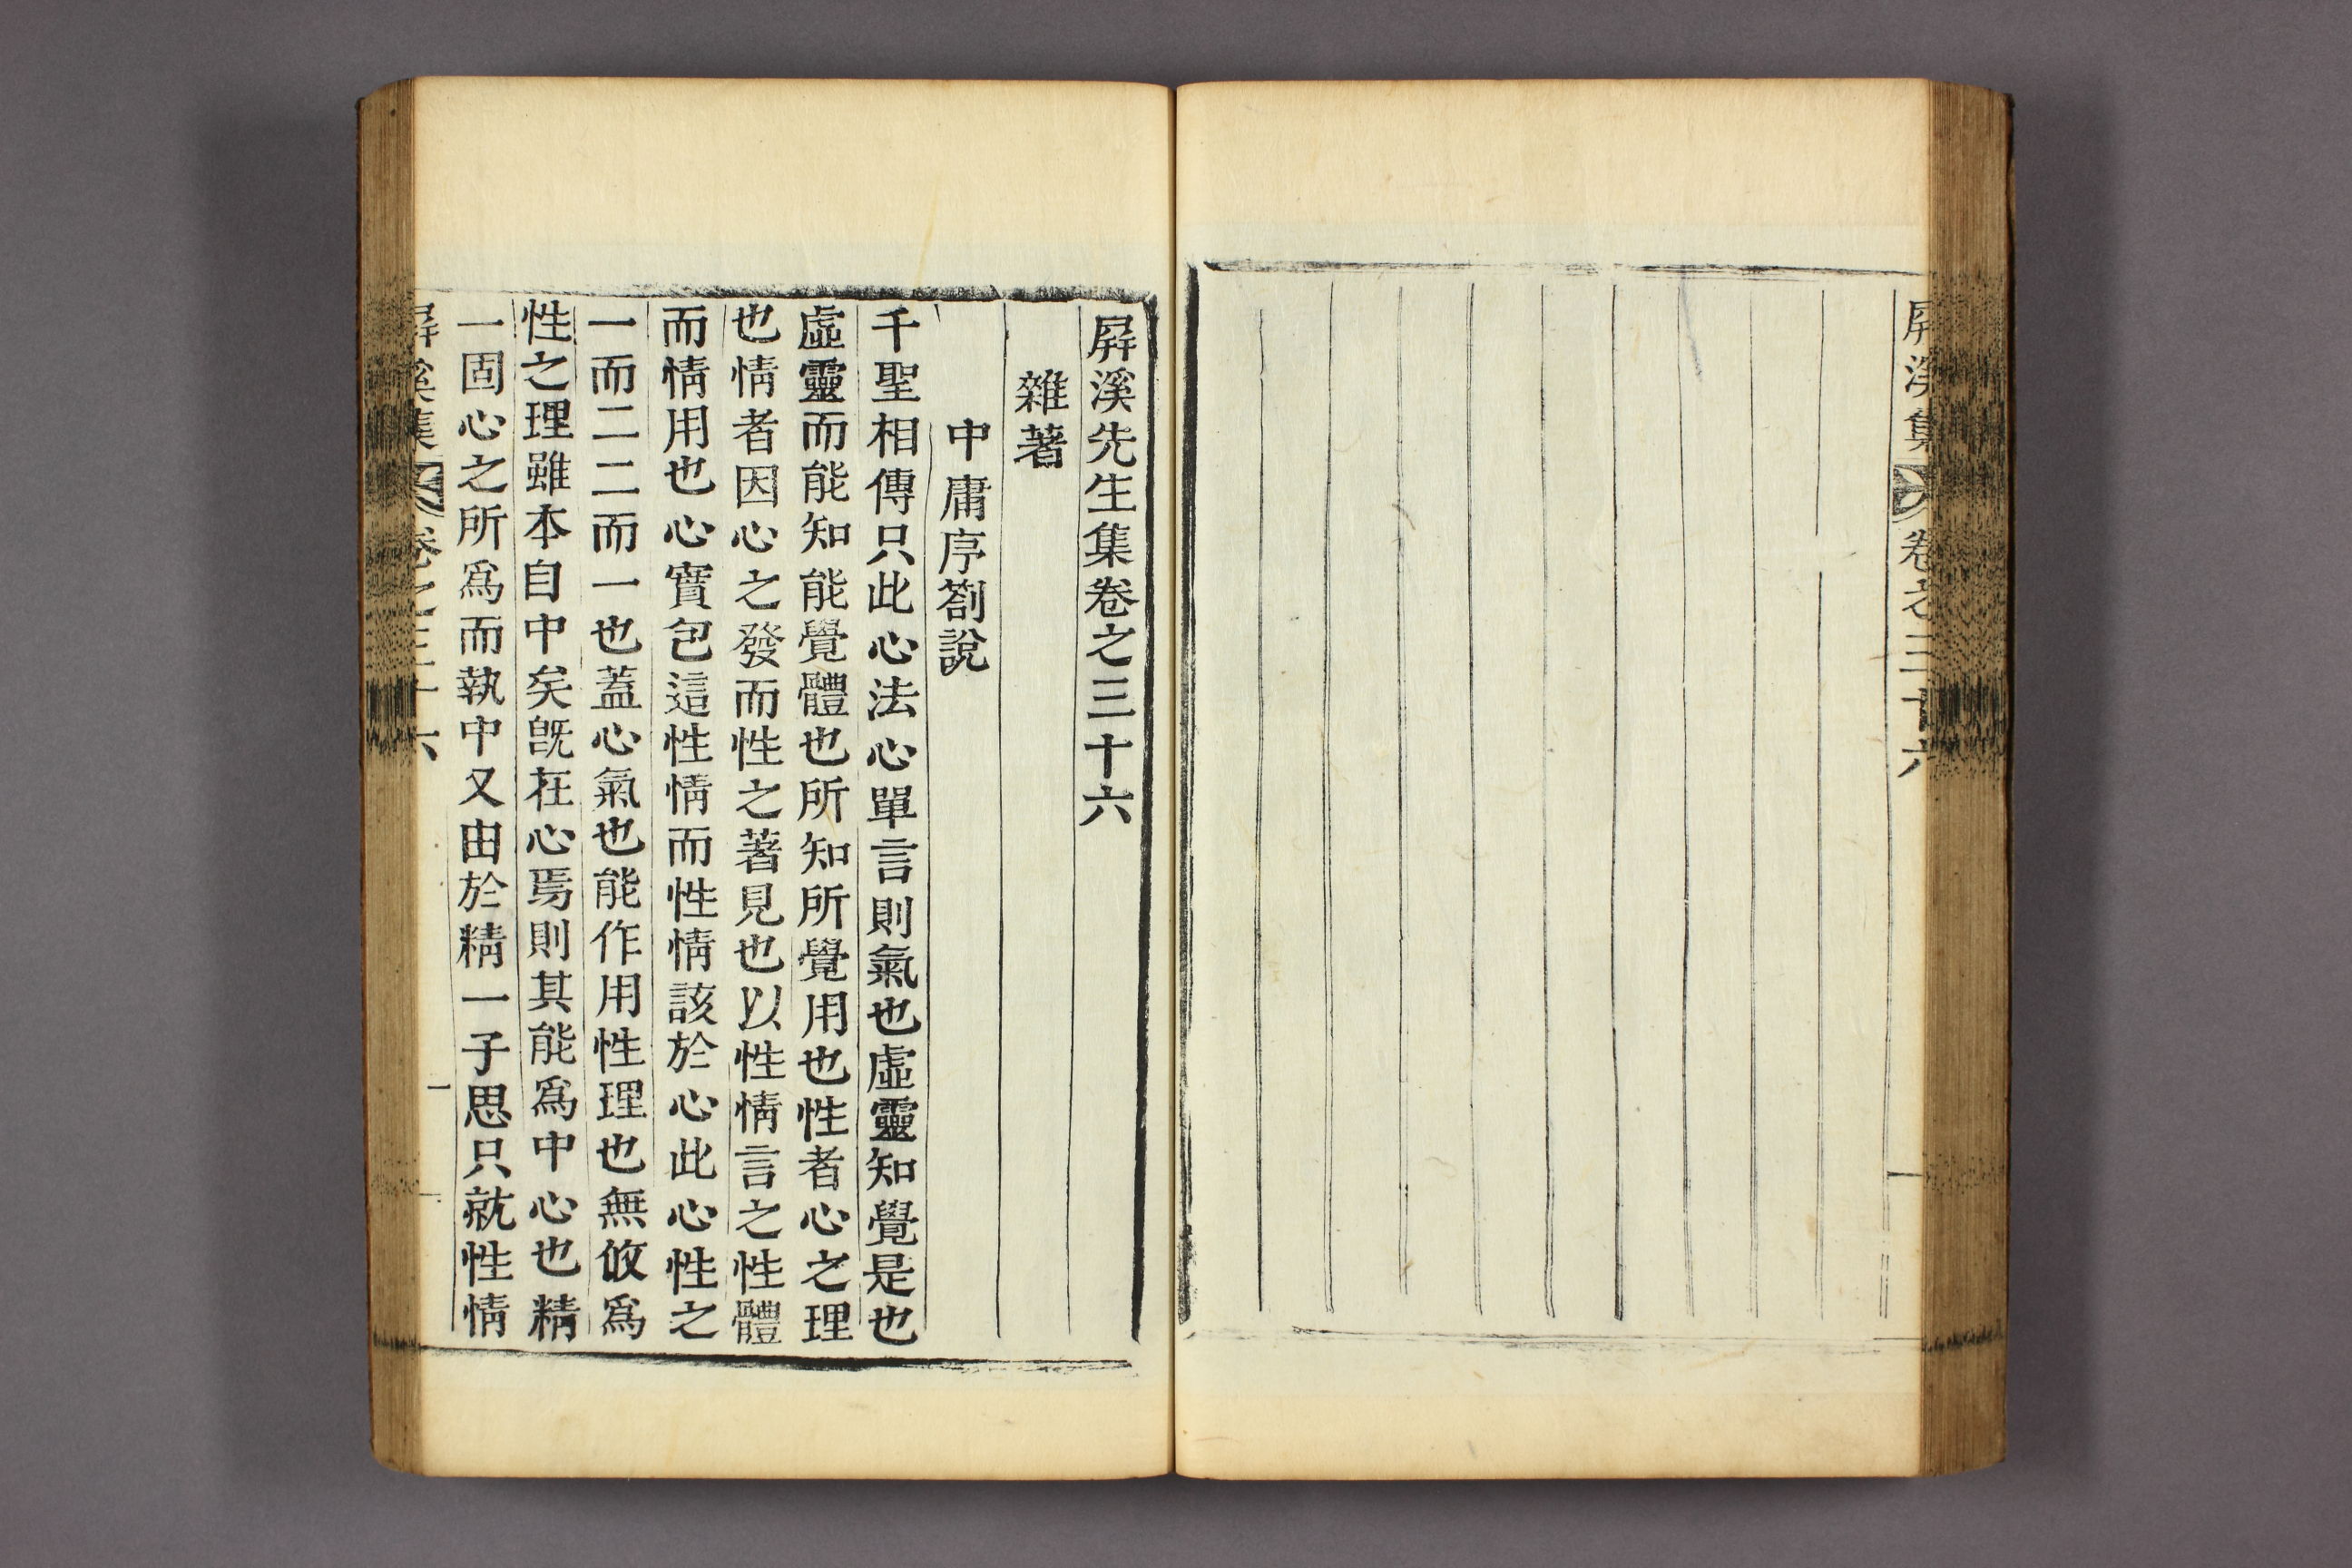 屛溪集 卷之三十六
一
屛溪先生集卷之三十六
雜著
中庸序箚說
千聖相傳只此心法心單言則氣也虛靈知覺是也
虛靈而能知能覺體也所知所覺用也性者心之理
也情者因心之發而性之著見也以性情言之性體
而情用也心實包這性情而性情該於心此心性之
一而二二而一也蓋心氣也能作用性理也無攸爲
性之理雖本自中矣旣在心焉則其能爲中心也精
一固心之所爲而執中又由於精一子思只就性情
屛溪集 卷之三十六
一